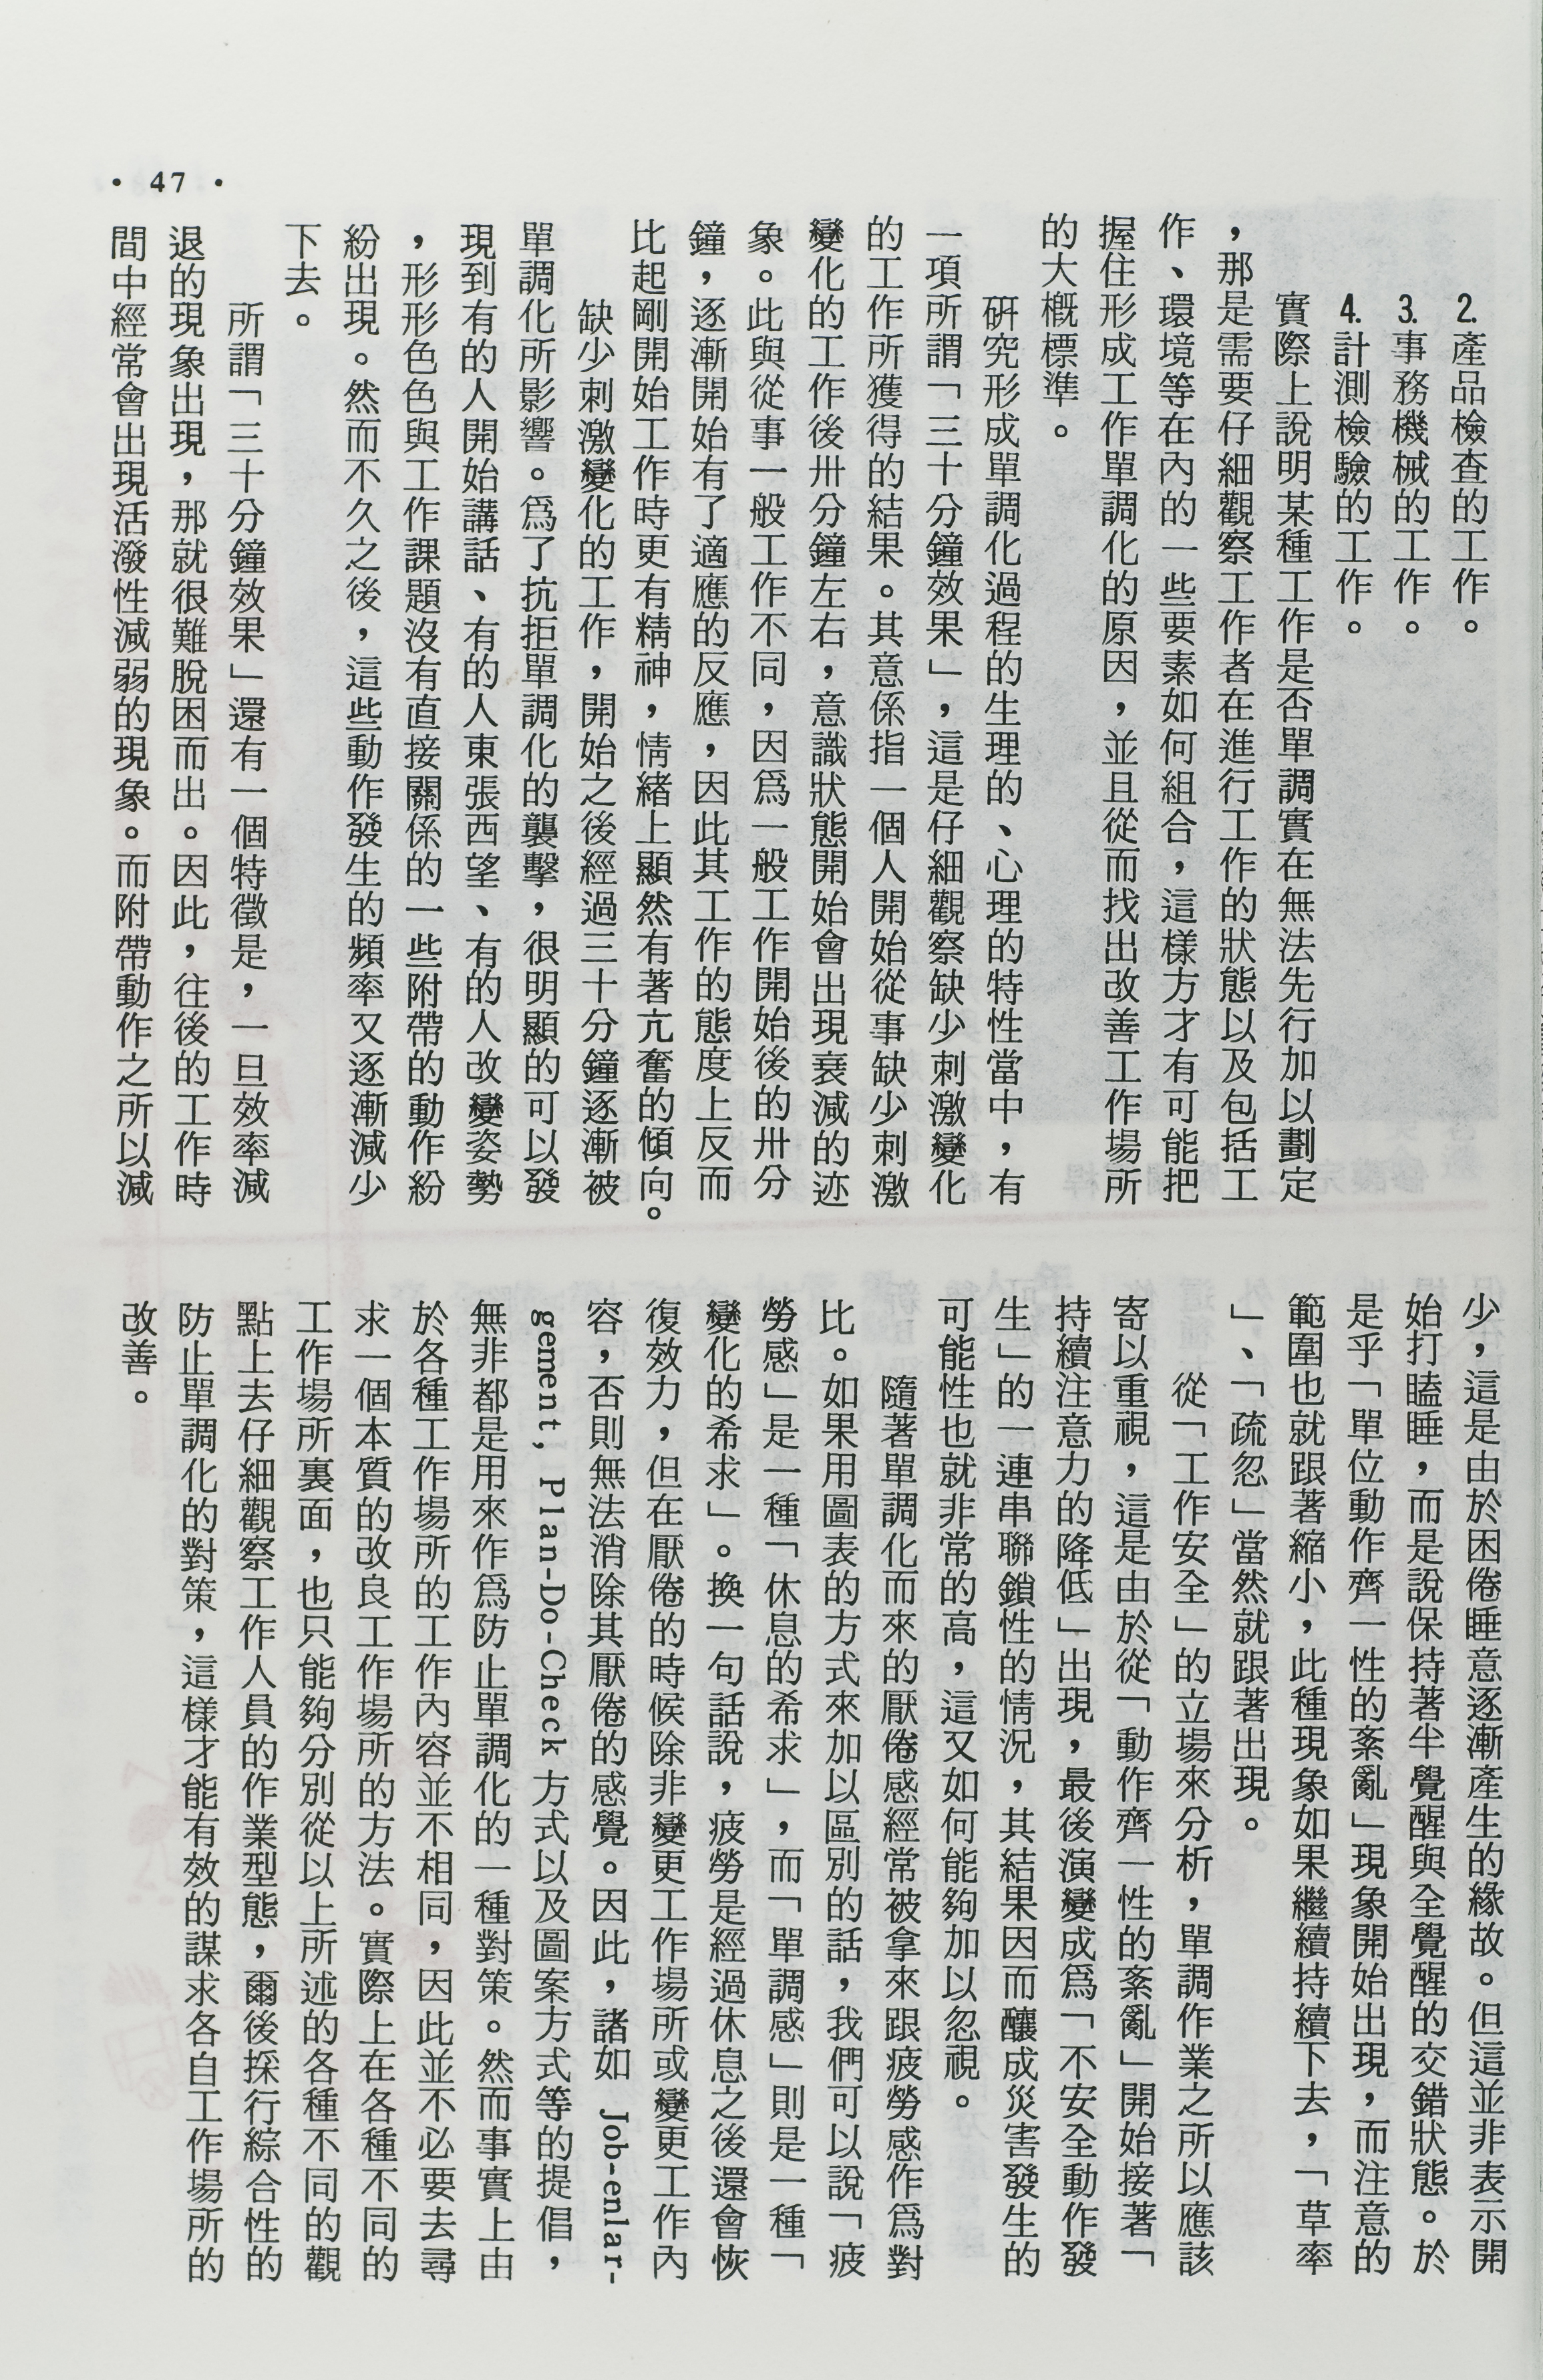 2.產品檢查的工作。
3.事務機械的工作。
4.計測檢驗的工作。
實際上說明某種工作是否單調實在無法先行加以劃定
，那是需要仔細觀察工作者在進行工作的狀態以及包括工
作、環境等在內的一些要素如何組合，這樣方才有可能把
握住形成工作單調化的原因，並且從而找出改善工作場所
的大概標準。
硏究形成單調化過程的生理的、心理的特性當中，有
一項所謂「三十分鐘效果」，這是仔細觀察缺少刺激變化
的工作所獲得的結果。其意係指一個人開始從事缺少刺激
變化的工作後卅分鐘左右，意識狀態開始會出現衰減的迹
象。此與從事一般工作不同，因爲一般工作開始後的卅分
鐘，逐漸開始有了適應的反應，因此其工作的態度上反而
比起剛開始工作時更有精神，情緒上顯然有著亢奮的傾向。
缺少刺激變化的工作，開始之後經過三十分鐘逐漸被
單調化所影響。爲了抗拒單調化的襲擊，很明顯的可以發
現到有的人開始講話、有的人東張西望、有的人改變姿勢
，形形色色與工作課題沒有直接關係的一些附帶的動作紛
紛出現。然而不久之後，這些動作發生的頻率又逐漸減少
下去。
所謂「三十分鐘效果」還有一個特徵是，一旦效率減
退的現象出現，那就很難脫困而出。因此，往後的工作時
間中經常會出現活潑性減弱的現象。而附帶動作之所以減
少，這是由於困倦睡意逐漸產生的緣故。但這並非表示開
始打瞌睡，而是說保持著半覺醒與全覺醒的交錯狀態。於
是乎「單位動作齊一性的紊亂」現象開始出現，而注意的
範圍也就跟著縮小，此種現象如果繼續持續下去，「草率
」、「疏忽」當然就跟著出現。
從「工作安全」的立場來分析，單調作業之所以應該
寄以重視，這是由於從「動作齊一性的紊亂」開始接著「
持續注意力的降低」出現，最後演變成爲「不安全動作發
生」的一連串聯鎖性的情況，其結果因而釀成災害發生的
可能性也就非常的高，這又如何能夠加以忽視。
隨著單調化而來的厭倦感經常被拿來跟疲勞感作爲對
比。如果用圖表的方式來加以區別的話，我們可以說「疲
勞感」是一種「休息的希求」，而「單調感」則是一種「
變化的希求」。換一句話說，疲勞是經過休息之後還會恢
復效力，但在厭倦的時候除非變更工作場所或變更工作內
容，否則無法消除其厭倦的感覺。因此，諸如 Job-enlar-
gement, Plan-Do-Check 方式以及圖案方式等的提倡，
無非都是用來作爲防止單調化的一種對策。然而事實上由
於各種工作場所的工作內容並不相同，因此並不必要去尋
求一個本質的改良工作場所的方法。實際上在各種不同的
工作場所裏面，也只能夠分別從以上所述的各種不同的觀
點上去仔細觀察工作人員的作業型態，爾後採行綜合性的
防止單調化的對策，這樣才能有效的謀求各自工作場所的
改善。
• 47 •